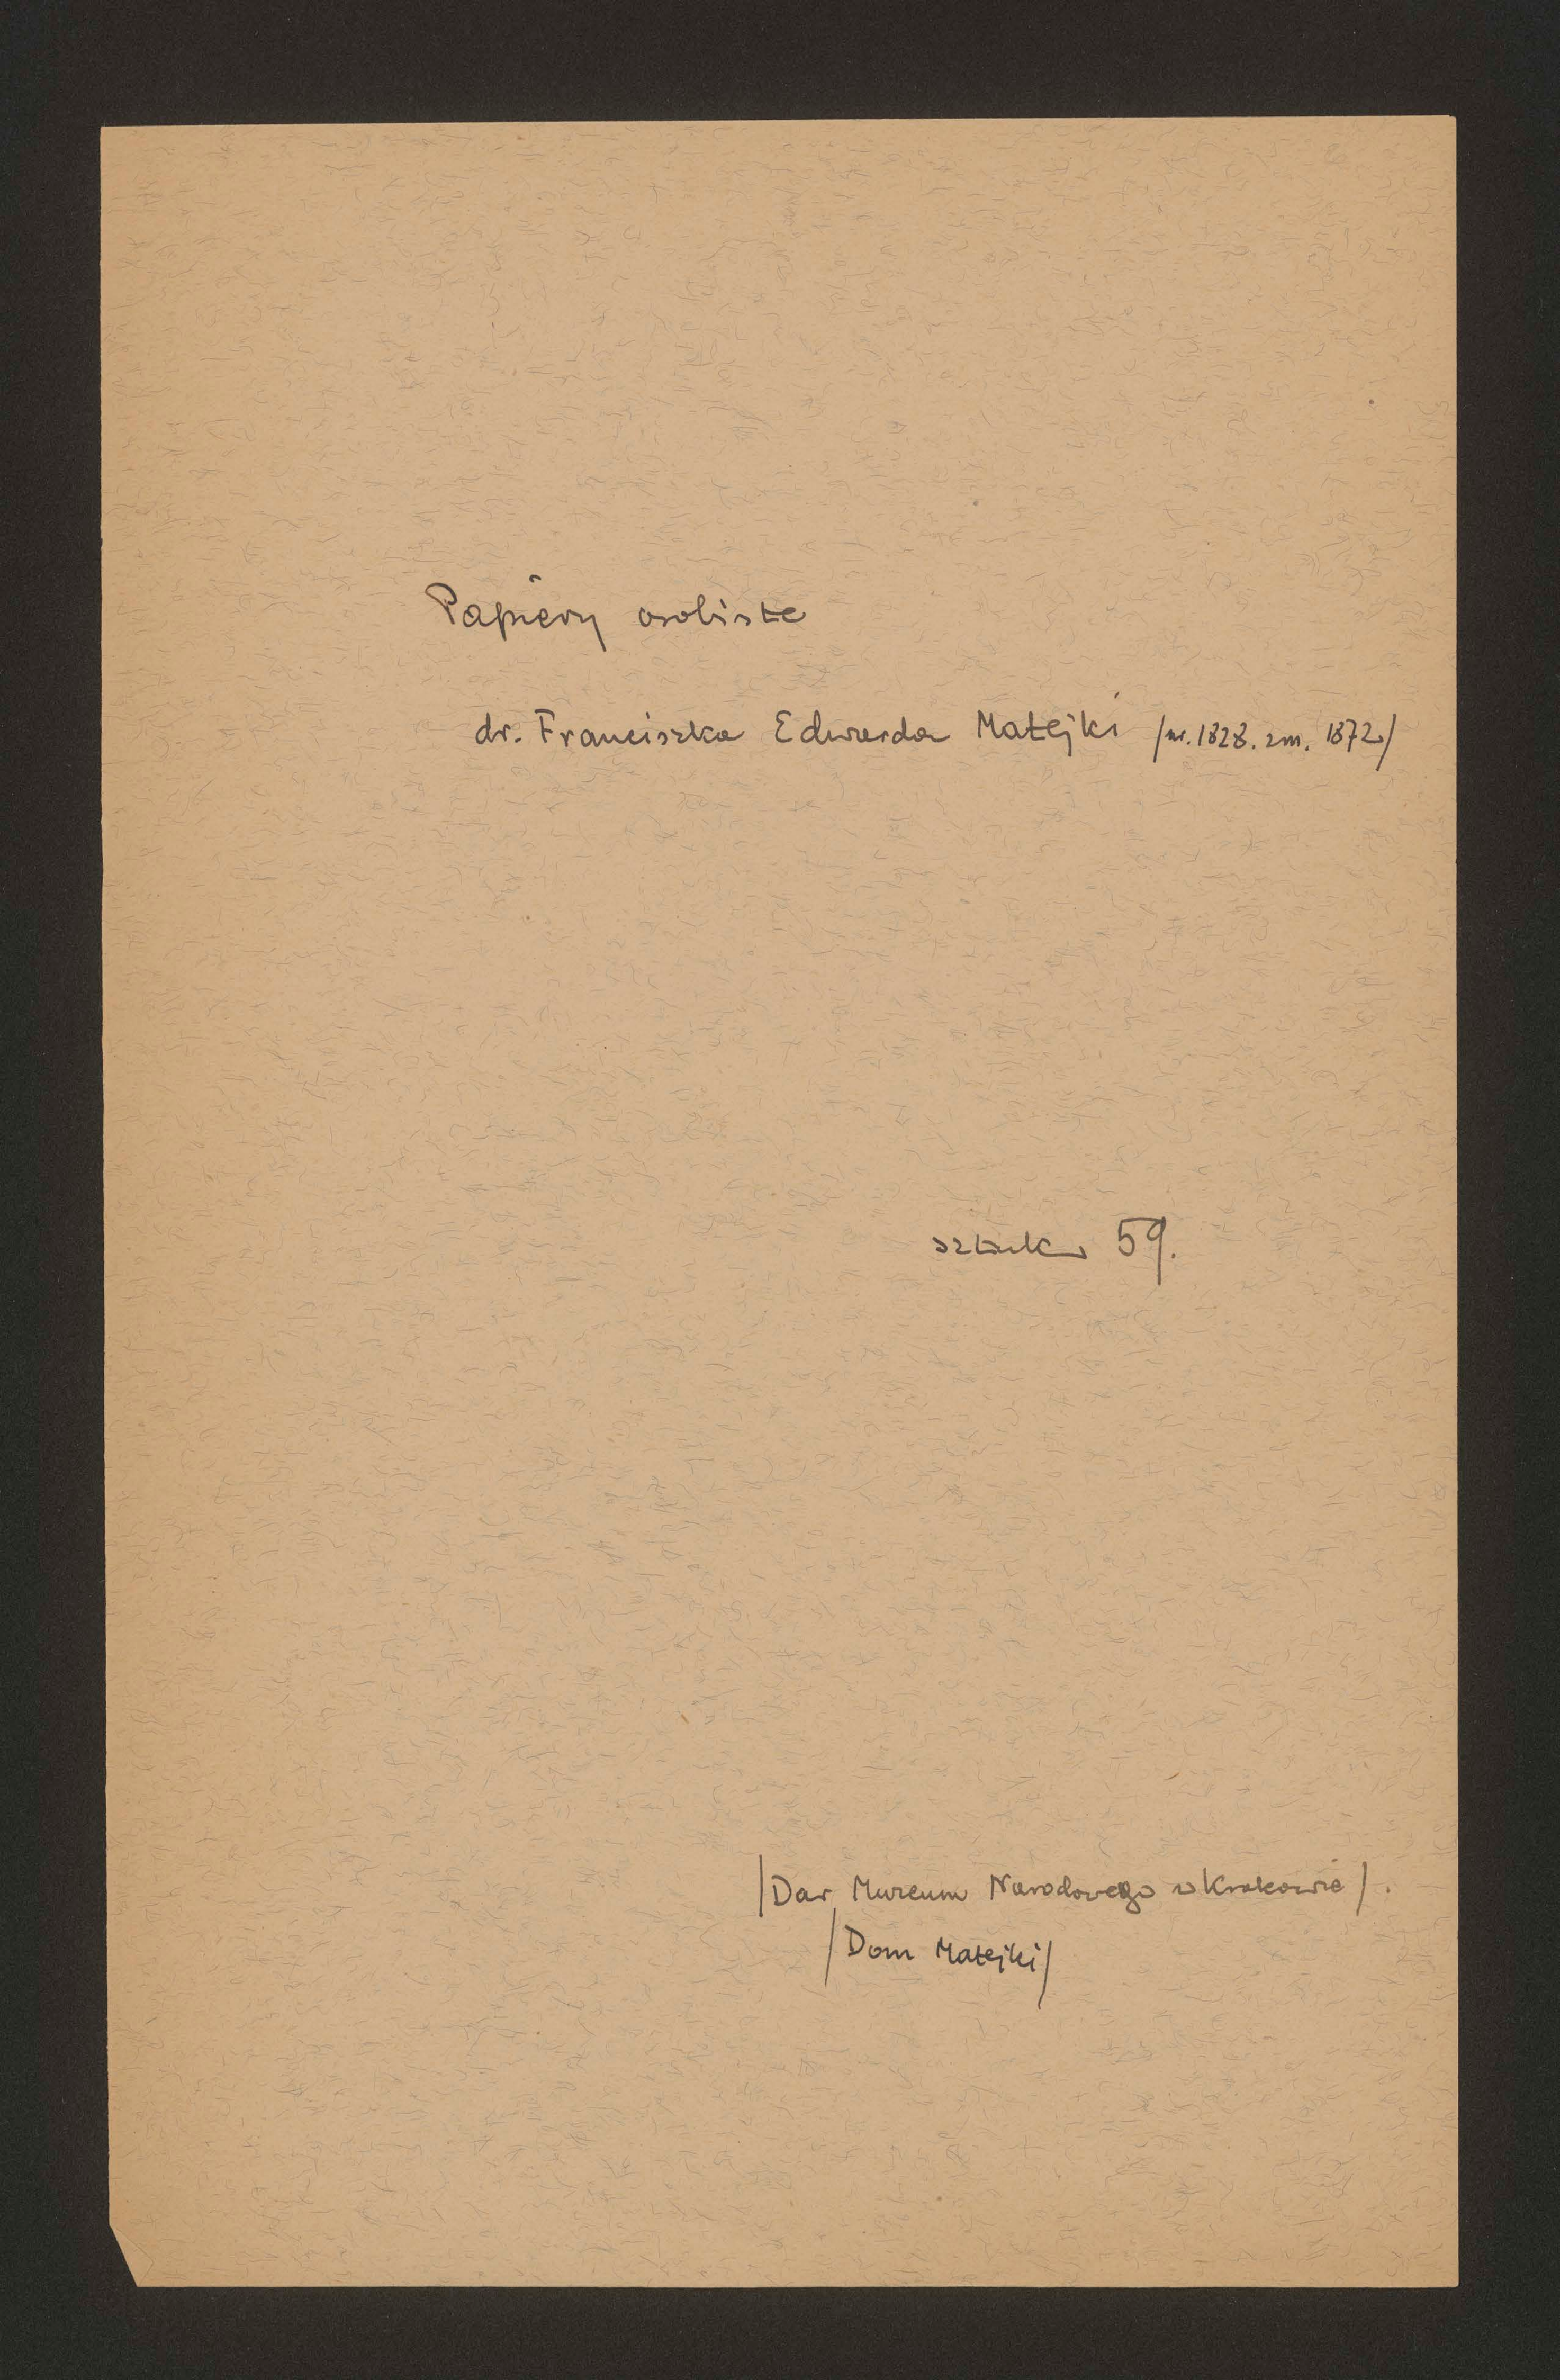 Papiery osobiste
dr. Franciszka Edwarda Matejki /ur. 1828. zm. 1872/
sztuk 59.
/Dar Muzeum Narodowego w Krakowie/.
/Dom Matejki/